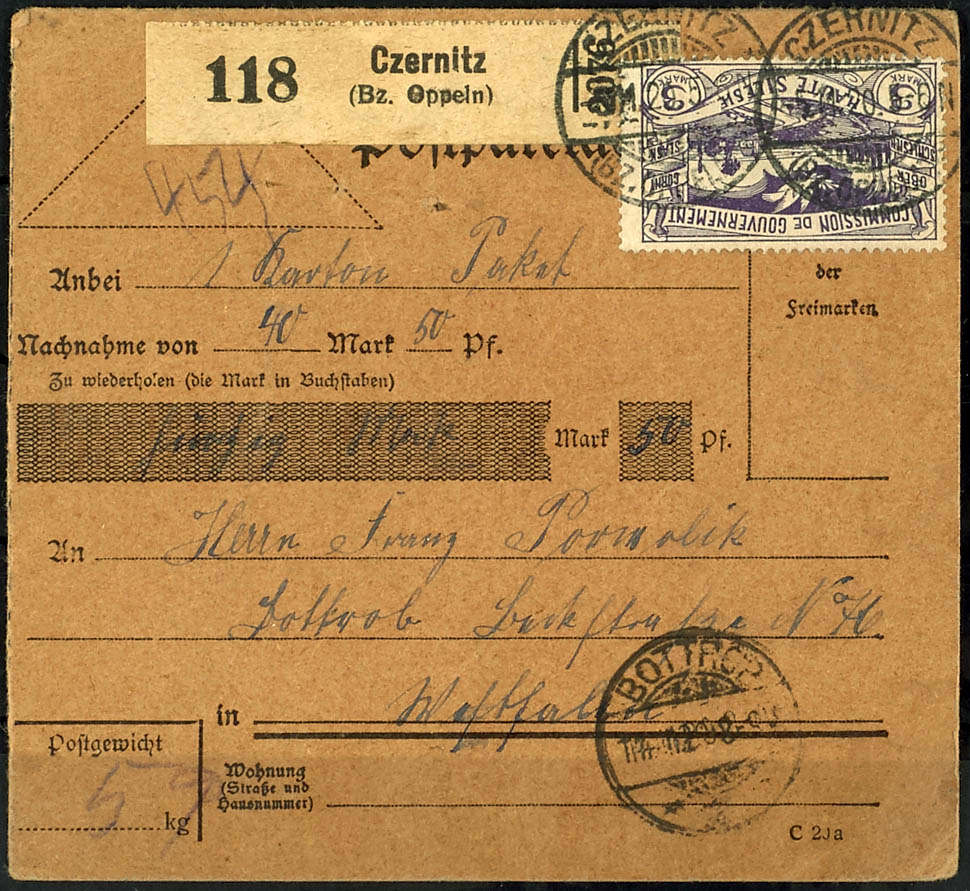 118 Czernitz
(Bz. Oppeln)
CZERNITZ
CZERNITZ
3 MARK HAUTE SILÉSIE 3 MARK
GORNY SLĄSK
OBER SCHLESIEN
COMMISSION DE GOUVERNEMENT
454
der
Freimarken
Anbei 1 Karton Paket
Nachnahme von 40 Mark 50 Pf.
Zu wiederholen (die Mark in Buchstaben)
Mark Mark 50 Pf.
An Herrn Franz Porwolik
Bottrob Beckstraße N
in Westfalen
BOTTROP
Postgewicht
57
kg
Wohnung
(Straße und
Hausnummer)
C 23a